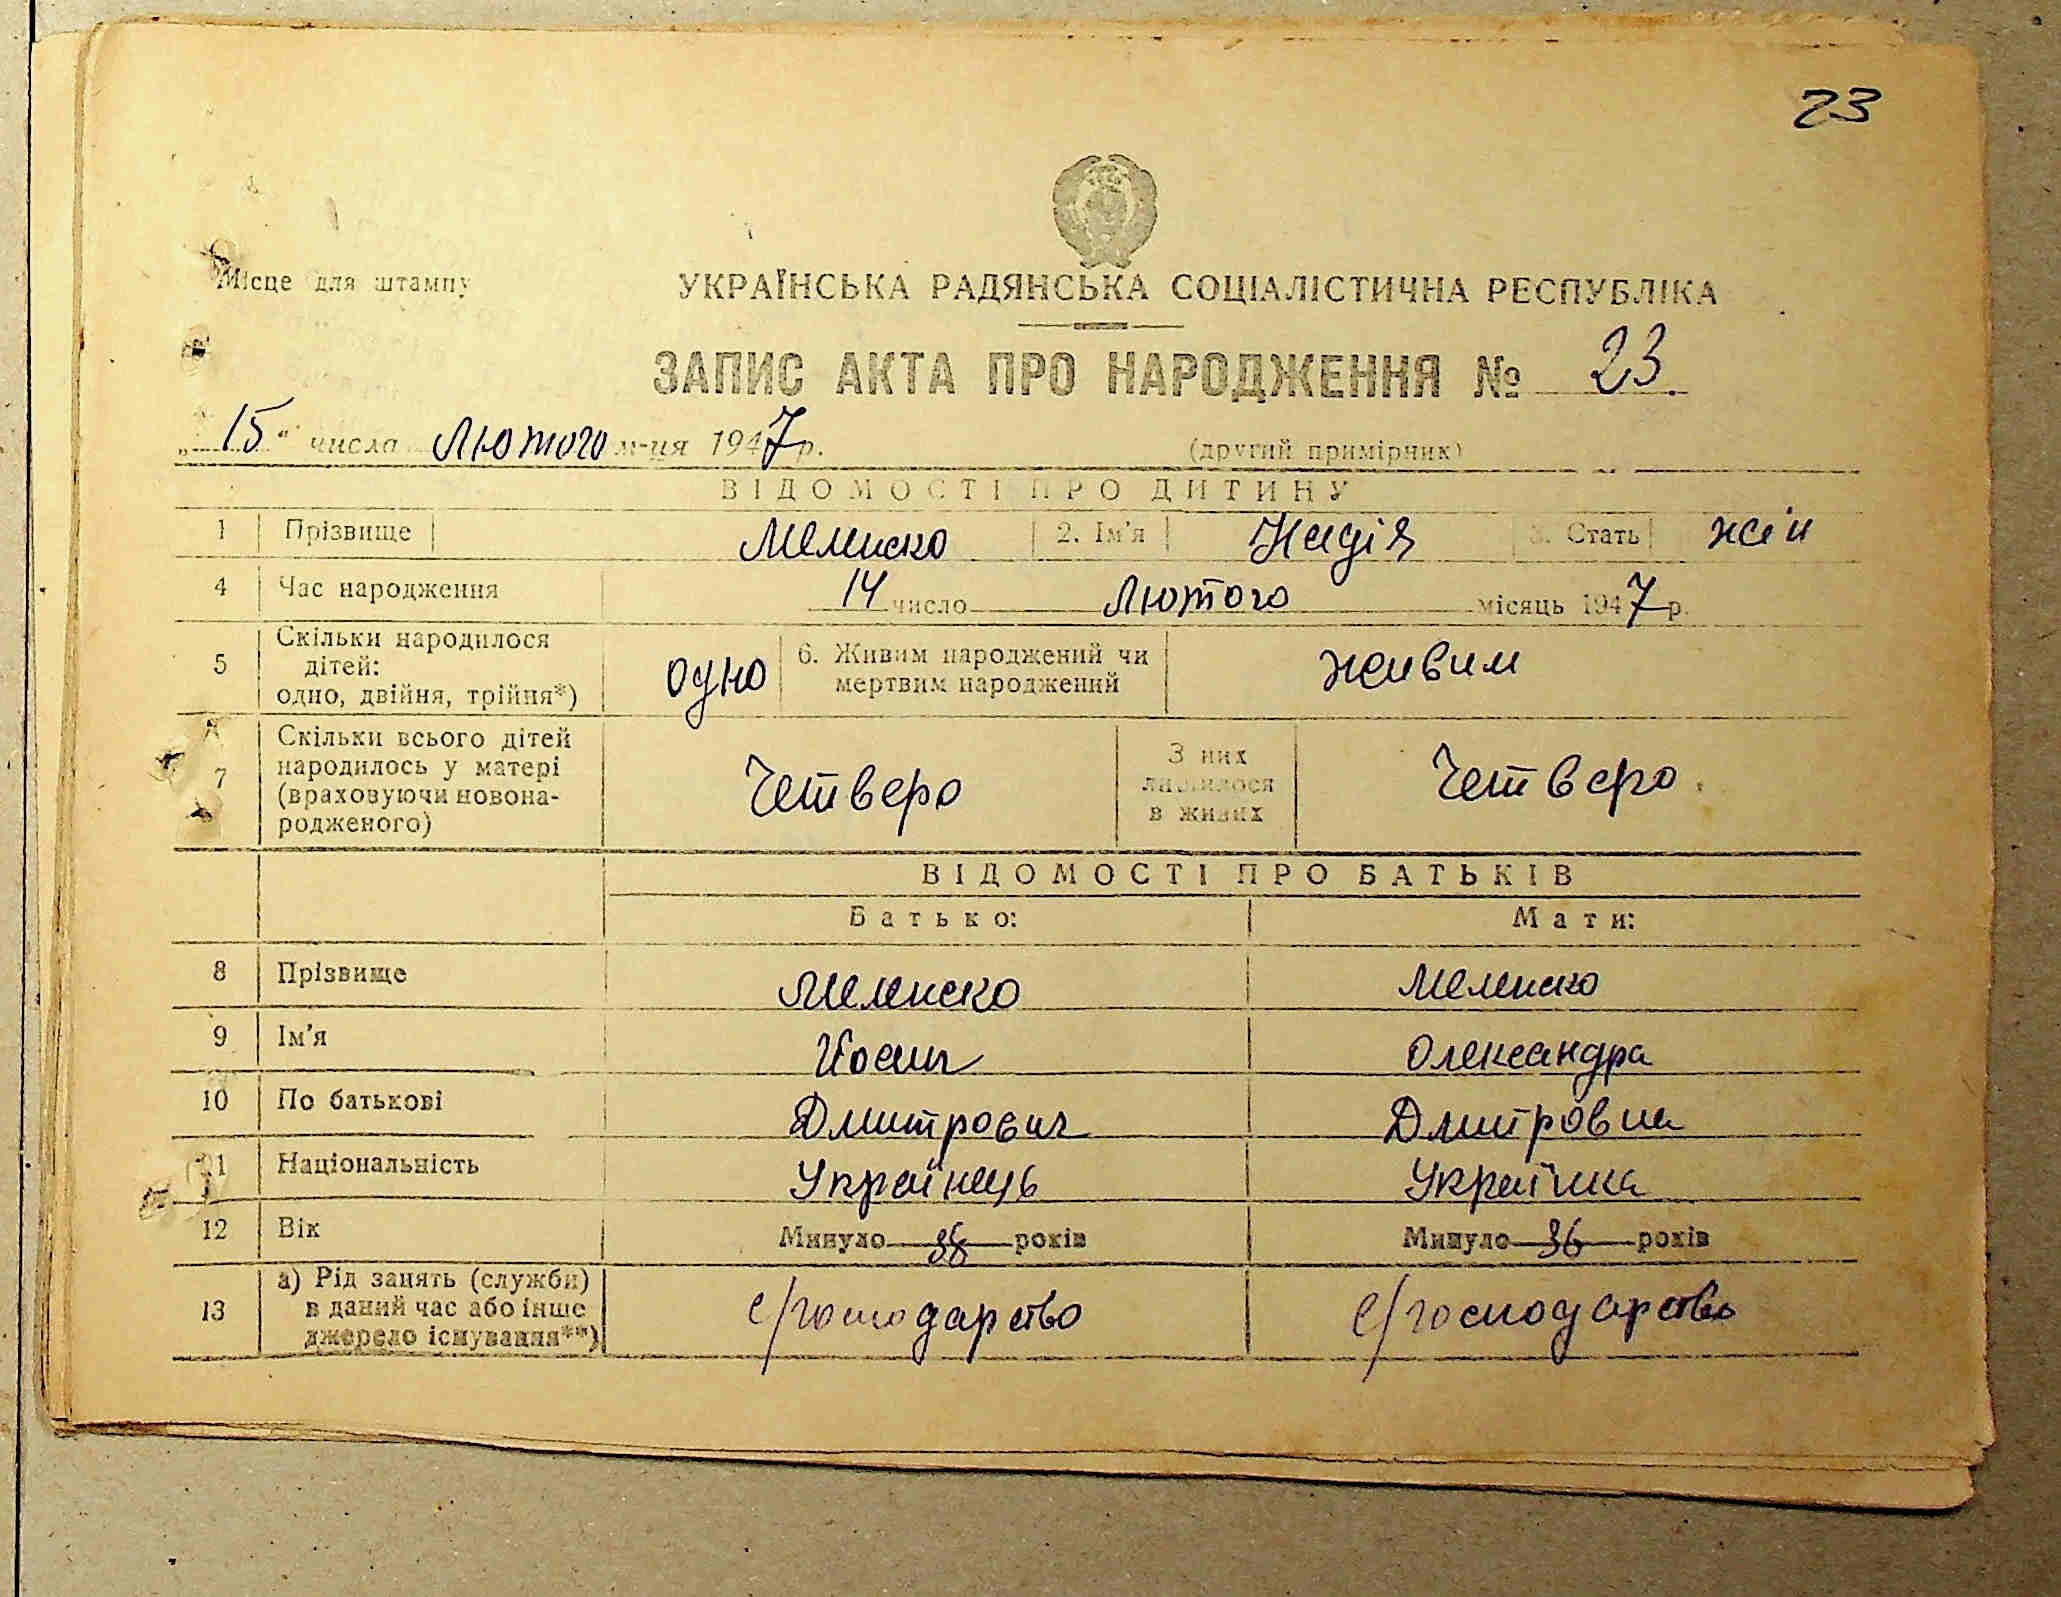 23
Місце для штампу
УКРАЇНСЬКА РАДЯНСЬКА СОЦІАЛІСТИЧНА РЕСПУБЛІКА
ЗАПИС АКТА ПРО НАРОДЖЕННЯ № 23
„15“ числа Лютого м-ця 1947 р.
(другий примірник)
ВІДОМОСТІ ПРО ДИТИНУ
1 Прізвище 2. Ім'я Надія 3. Стать жін
4 Час народження 14 число Лютого місяць 1947 р.
5 Скільки народилося дітей: одно, двійня, трійня*) одно 6. Живим народжений чи мертвим народжений живим
7 Скільки всього дітей народилось у матері (враховуючи новонародженого) Четверо З них лишилося в живих Четверо
ВІДОМОСТІ ПРО БАТЬКІВ
Батько: Мати:
8 Прізвище
9 Ім'я Йосип Олександра
10 По батькові Дмитрович Дмитровна
11 Національність Українець Українка
12 Вік Минуло років Минуло 36 років
13 а) Рід занять (служби) в даний час або інше джерело існування**) с/господарство с/господарство